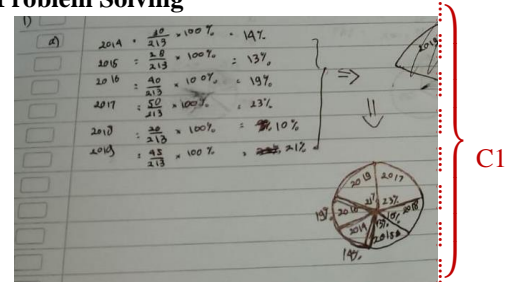 Problem Solving
1)
a) 2014 = 30/213 × 100% = 14%
2015 = 28/213 × 100% = 13%
2016 = 40/213 × 100% = 19%
2017 = 50/213 × 100% = 23%
2018 = 20/213 × 100% = 10%
2019 = 45/213 × 100% = 21%
⇒
2019
⇓
C1
2019 2017
21% 23%
19% 2016 10% 2018
2014 13%
2015
14%